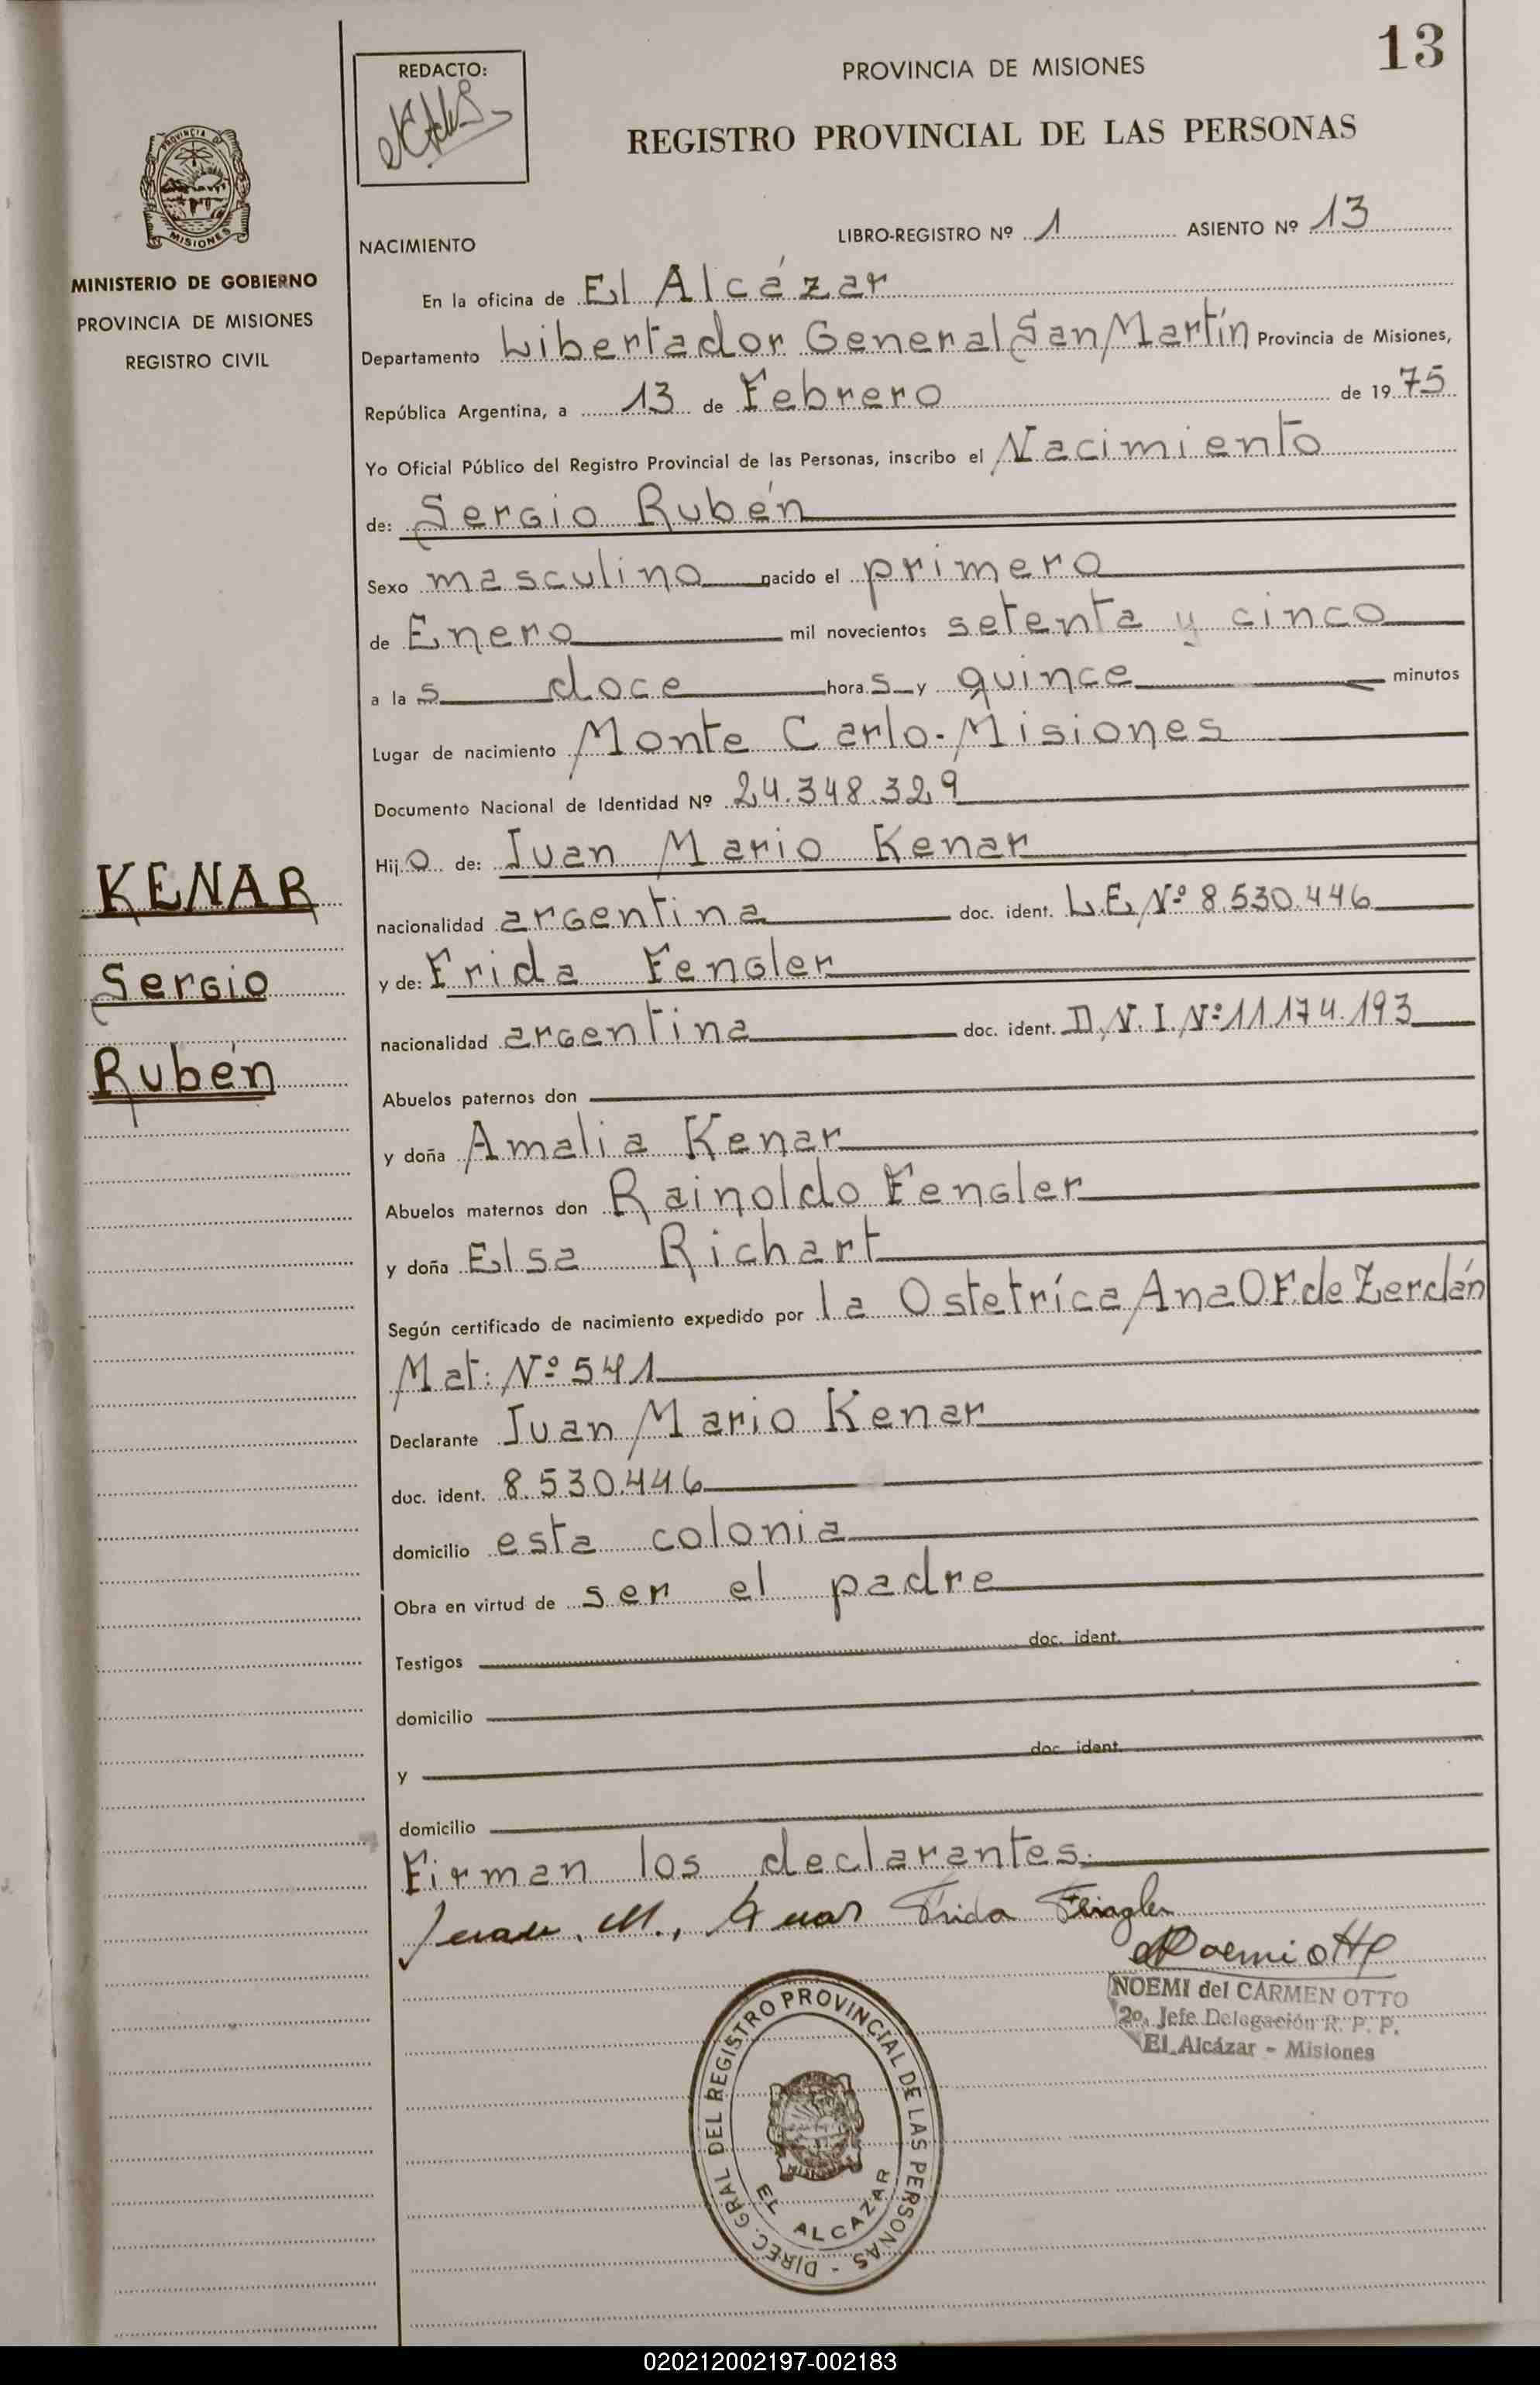 13
REDACTO:
PROVINCIA DE MISIONES
REGISTRO PROVINCIAL DE LAS PERSONAS
PROVINCIA DE
MISIONES
MINISTERIO DE GOBIERNO
PROVINCIA DE MISIONES
REGISTRO CIVIL
NACIMIENTO
LIBRO-REGISTRO Nº 1 ASIENTO Nº 13
En la oficina de El Alcázar
Departamento Libertador General San Martín Provincia de Misiones,
República Argentina, a 13 de Febrero de 1975
Yo Oficial Público del Registro Provincial de las Personas, inscribo el Nacimiento
de: Sergio Rubén
Sexo masculino nacido el primero
de Enero mil novecientos setenta y cinco
a las doce horas y quince minutos
Lugar de nacimiento Monte Carlo-Misiones
Documento Nacional de Identidad Nº 24.348.329
Hijo de: Juan Mario Kenar
nacionalidad argentina doc. ident. L.E. Nº 8.530.446
y de: Frida Fengler
nacionalidad argentina doc. ident. D.N.I. Nº 11.174.193
Abuelos paternos don
y doña Amalia Kenar
Abuelos maternos don Rainoldo Fengler
y doña Elsa Richart
Según certificado de nacimiento expedido por la Ostetríca Ana O.F. de Zerdán
Mat: Nº 541
Declarante Juan Mario Kenar
doc. ident. 8.530.446
domicilio esta colonia
Obra en virtud de ser el padre
Testigos doc. ident.
domicilio
y doc. ident.
domicilio
Firman los declarantes.
KENAR
Sergio
Rubén
Juan. M., Kenar Frida Fengler
Noemi Otto
NOEMI del CARMEN OTTO
2º. Jefe Delegación R. P. P.
El Alcázar - Misiones
DIREC. GRAL DEL REGISTRO PROVINCIAL DE LAS PERSONAS -
EL ALCAZAR
MISIONES
020212002197-002183